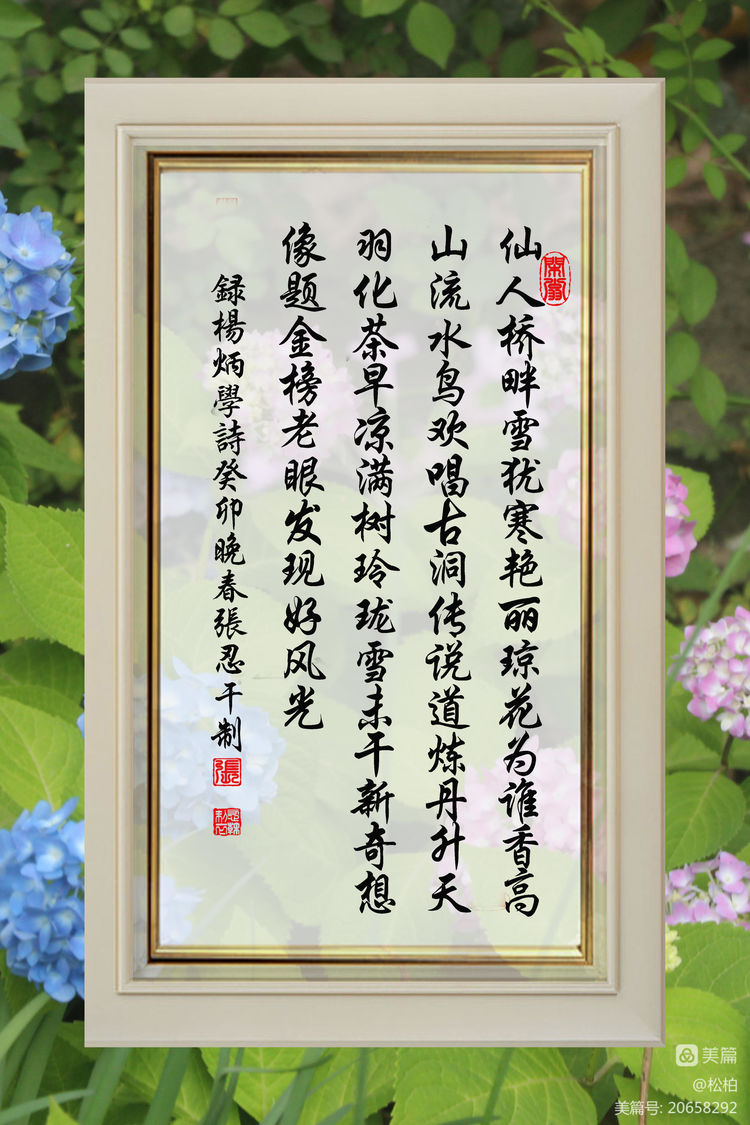 仙人桥畔雪犹寒艳丽琼花为谁香高
山流水鸟欢唱古洞传说道炼丹升天
羽化茶早凉满树玲珑雪未干新奇想
像题金榜老眼发现好风光
録楊炳學詩癸卯晚春張忍干制
張
美篇
@松柏
美篇号: 20658292